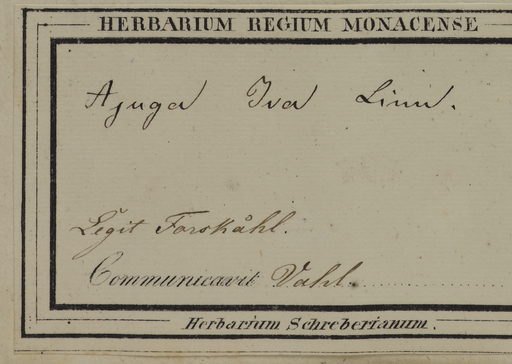 HERBARIUM REGIUM MONACENSE
Ajuga Iva Linn.
Legit Forskåhl.
Communicavit Vahl.
Herbarium Schreberianum.